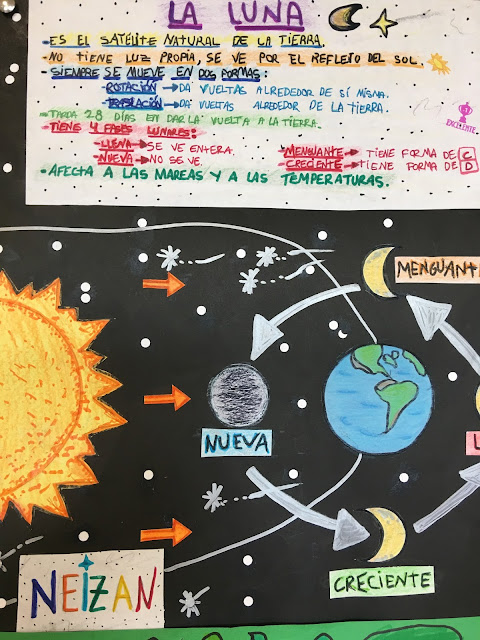 LA LUNA
- ES EL SATÉLITE NATURAL DE LA TIERRA.
- NO TIENE LUZ PROPIA, SE VE POR EL REFLEJO DEL SOL.
- SIEMPRE SE MUEVE EN DOS FORMAS:
ROTACIÓN → DA VUELTAS ALREDEDOR DE SÍ MISMA.
TRASLACIÓN → DA VUELTAS ALREDEDOR DE LA TIERRA.
- TARDA 28 DÍAS EN DAR LA VUELTA A LA TIERRA.
- TIENE 4 FASES LUNARES:
LLENA → SE VE ENTERA.
NUEVA → NO SE VE.
MENGUANTE → TIENE FORMA DE C
CRECIENTE → TIENE FORMA DE D
- AFECTA A LAS MAREAS Y A LAS TEMPERATURAS.
EXCELENTE.
MENGUANT
NUEVA
L
CRECIENTE
NEIZAN